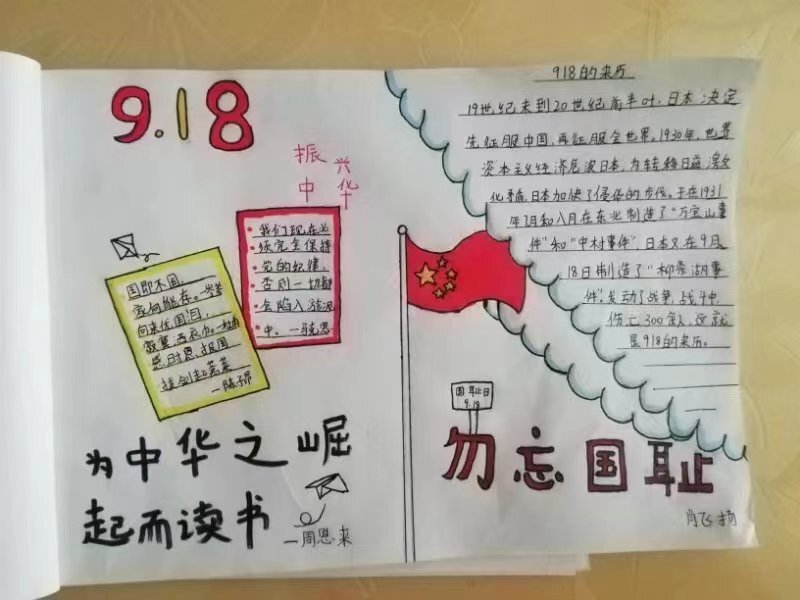 9.18
振兴
中华
我们现在必
须完全保持
党的纪律,
否则一切都
会陷入污泥
中。—马克思
国即不国
家何能存。—
向来任国泪,
寂寞西衣巾。—
感时思报国
拔剑起蒿莱
—陈子昂
为中华之崛
起而读书
—周恩来
918的来历
19世纪末到20世纪前半叶,日本决定
先征服中国,再征服全世界。1930年,世界
资本主义经济危波日本,为转移日益激
化矛盾,日本加快了侵华的步伐,于在1931
年7月和八月在东北制造了“万宝山事
件”和“中村事件”,日本又在9月
18日制造了“柳条湖事
件”,发动了战争,战斗中,
伤亡300余人,这就
是918的来历。
国耻日
9.18
勿忘国耻
肖飞扬